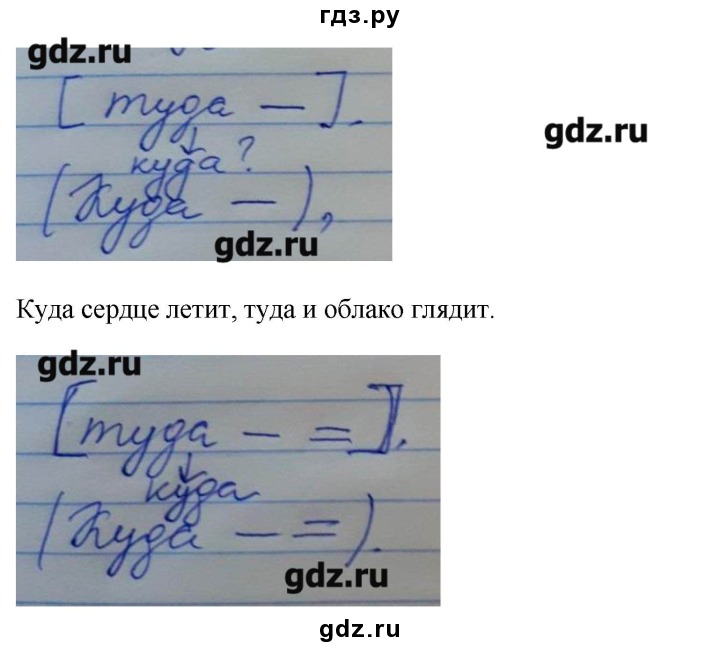 гдз.ру
gdz.ru
[ туда — ].
gdz.ru
куда?
(Куда — ),
gdz.ru
Куда сердце летит, туда и облако глядит.
gdz.ru
[туда — =].
куда
(Куда — =).
gdz.ru
gdz.ru